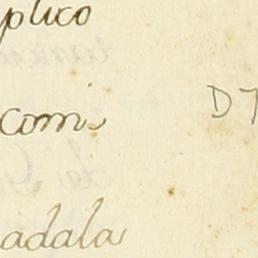 plico
comi D7
adala